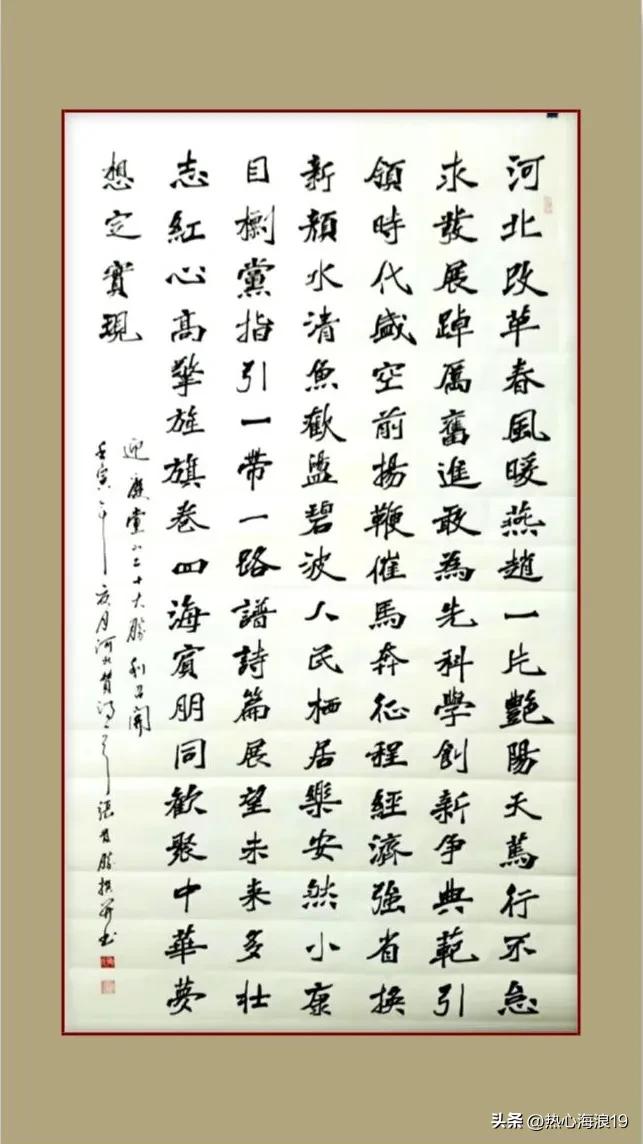 河北改革春風暖燕趙一片艷陽天篤行不怠
求發展踔厲奮進敢為先科學創新爭典範引
領時代盛空前揚鞭催馬奔征程經濟強省換
新顏水清魚歡盪碧波人民栖居樂安然小康
目標黨指引一帶一路譜詩篇展望未来多壯
志紅心高擎旌旗卷四海賓朋同歡聚中華夢
想定實現
迎慶黨二十大勝利召開
壬寅年亥月河北
头条 @热心海浪19